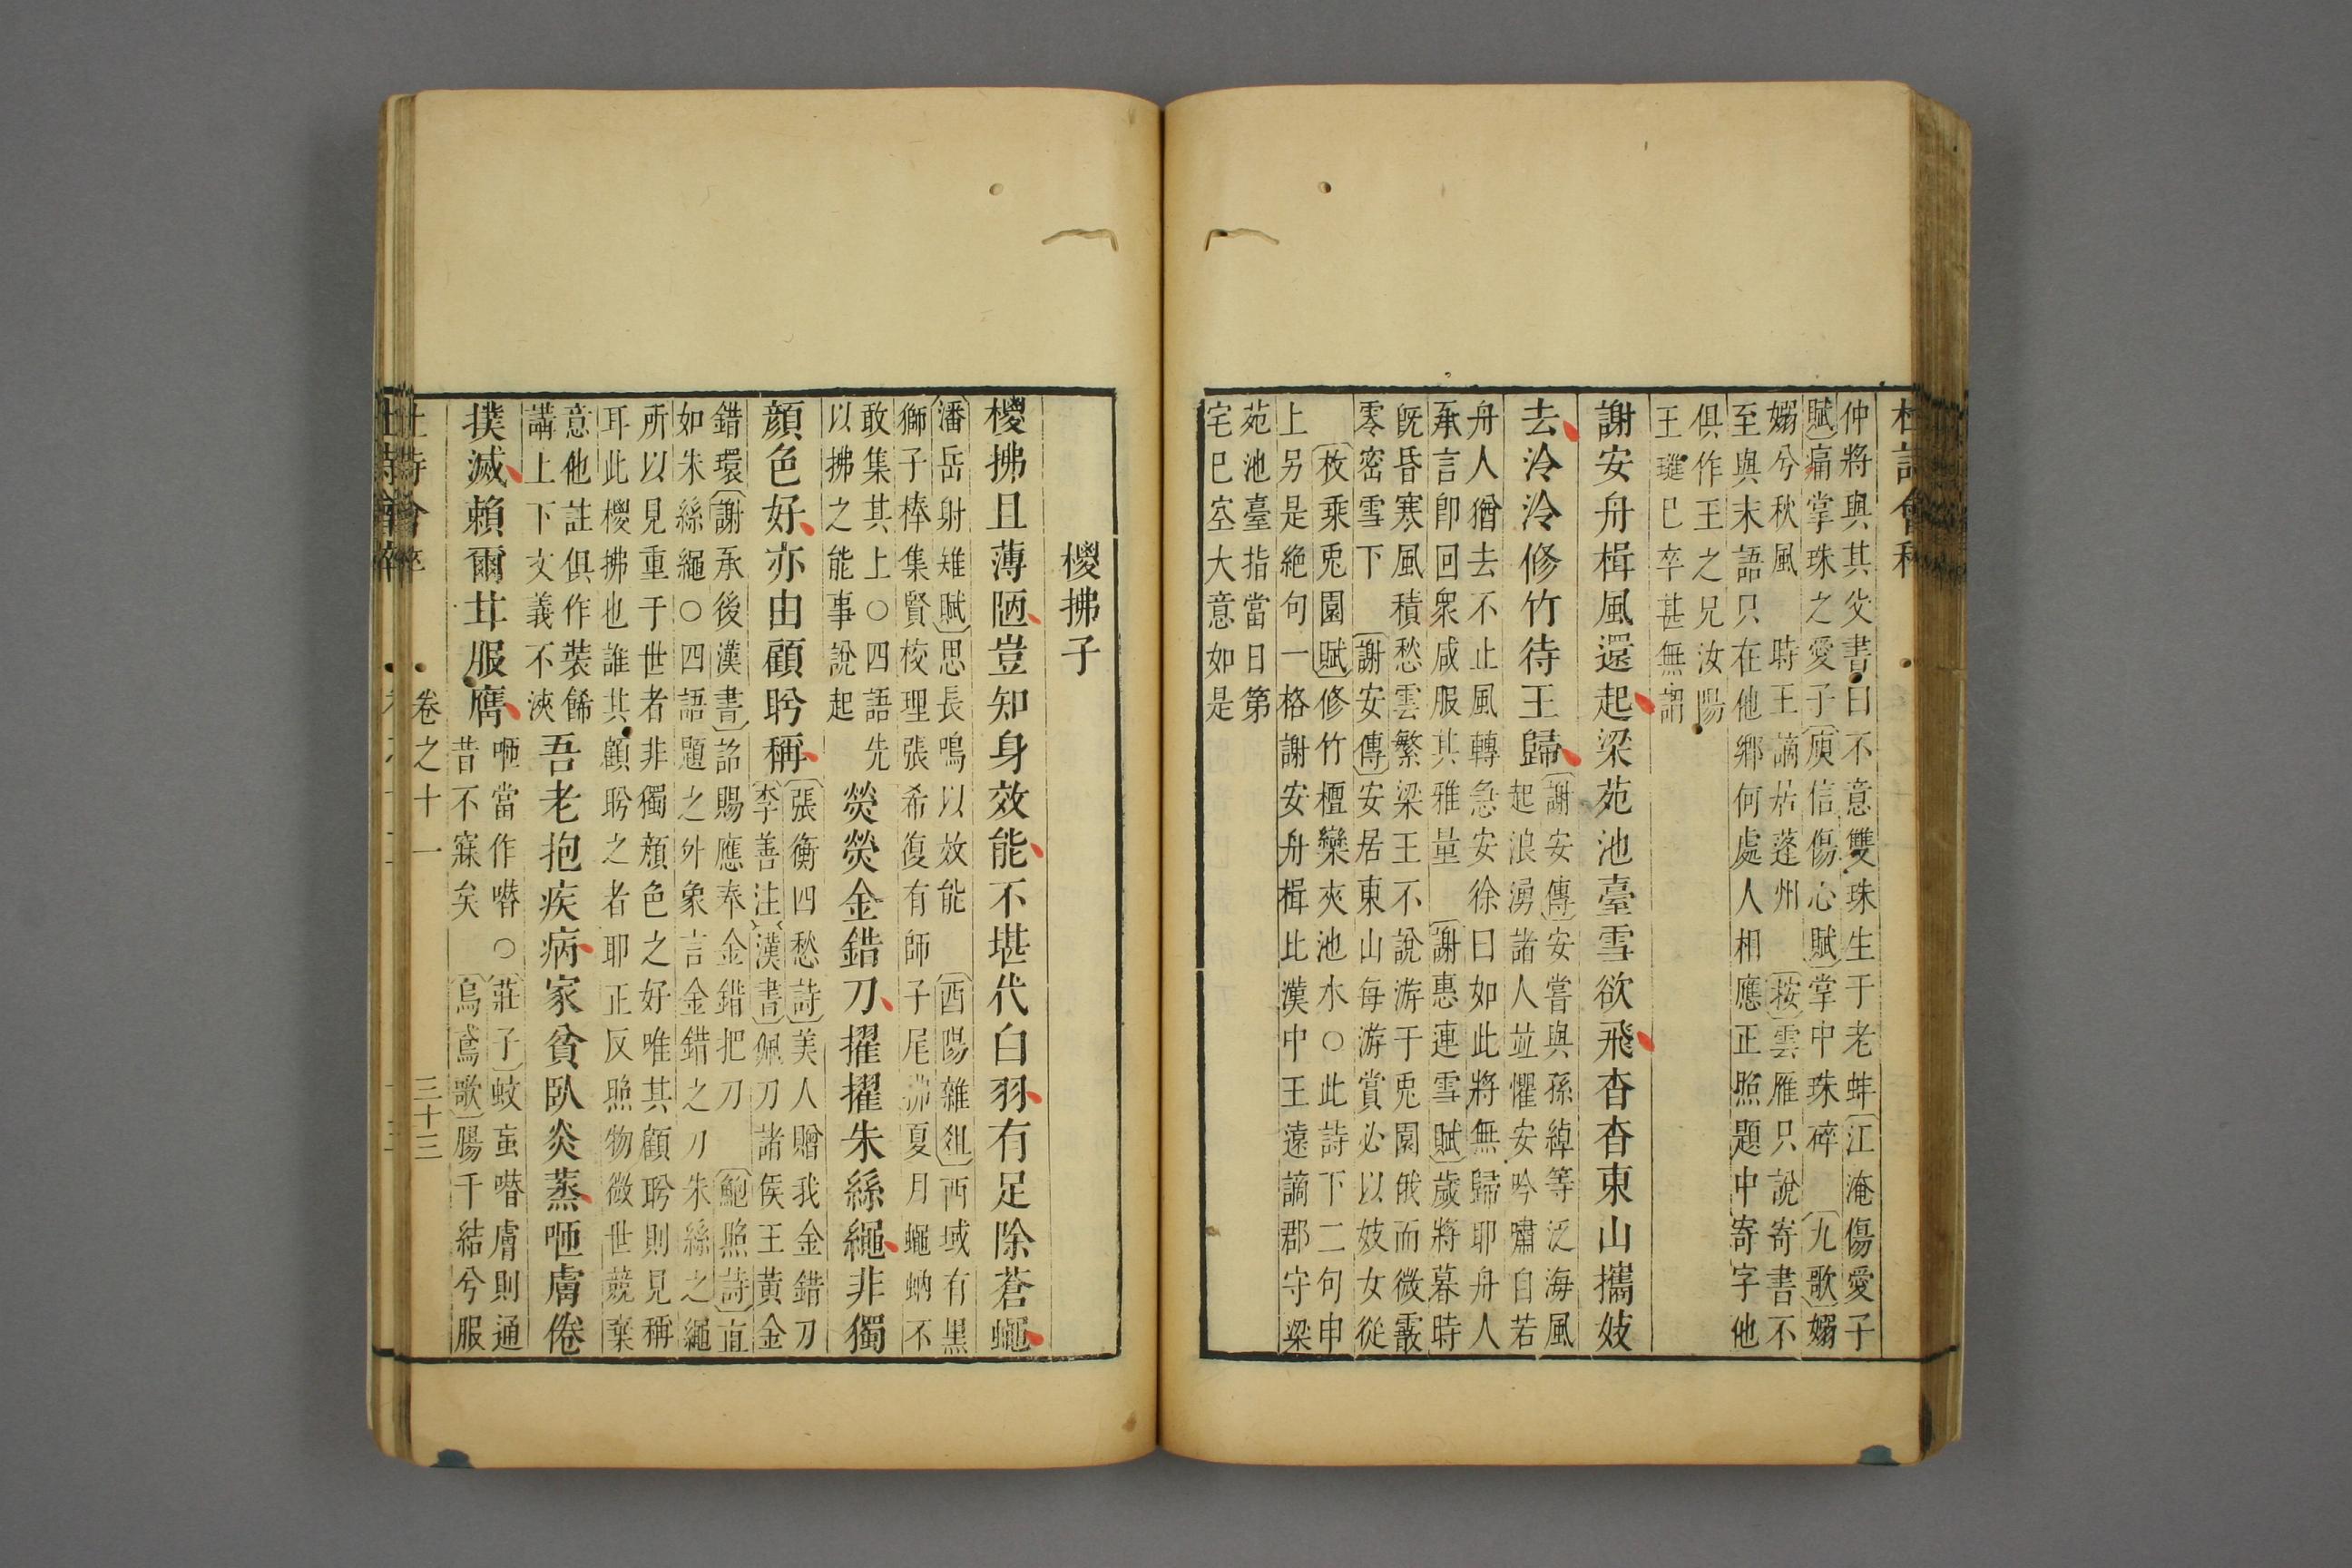 仲將與其父書曰不意雙珠生于老蚌〔江淹傷愛子
賦〕痛掌珠之愛子〔庾信傷心賦〕掌中珠碎 〔九歌〕嫋
嫋兮秋風 時王謫居蓬州 〔按〕雲雁只說寄書不
至與末語只在他鄉何處人相應正照題中寄字他
俱作王之兄汝陽
王璡已卒甚無謂
謝安舟楫風還起梁苑池臺雪欲飛杳杳東山攜妓
去泠泠修竹待王歸
〔謝安傳〕安嘗與孫綽等泛海風
起浪湧諸人並懼安吟嘯自若
舟人猶去不止風轉急安徐曰如此將無歸耶舟人
承言即回眾咸服其雅量 〔謝惠連雪賦〕歲將暮時
既昏寒風積愁雲繁梁王不說游于兎園俄而微霰
零密雪下 〔謝安傳〕安居東山每游賞必以妓女從
〔枚乘兎園賦〕修竹檀欒夾池水○此詩下二句申
上另是絕句一格謝安舟楫比漢中王遠謫郡守梁
苑池臺指當日第
宅已空大意如是
椶拂子
椶拂且薄陋豈知身效能不堪代白羽有足除蒼蠅
〔潘岳射雉賦〕思長鳴以效能 〔酉陽雜俎〕西域有黑
獅子棒集賢校理張希復有師子尾拂夏月蠅蚋不
敢集其上○四語先
以拂之能事說起
熒熒金錯刀擢擢朱絲繩非獨
顏色好亦由顧盻稱
〔張衡四愁詩〕美人贈我金錯刀
〔李善注〕〔漢書〕佩刀諸侯王黃金
錯環〔謝承後漢書〕詔賜應奉金錯把刀 〔鮑照詩〕直
如朱絲繩○四語題之外象言金錯之刀朱絲之繩
所以見重于世者非獨顏色之好唯其顧盻則見稱
耳此椶拂也誰其顧盻之者耶正反照物微世競棄
意他註俱作裝餙
講上下文義不浹
吾老抱疾病家貧臥炎蒸咂膚倦
撲滅賴爾甘服膺
咂當作噆○〔莊子〕蚊䖟噆膚則通
昔不寐矣 〔烏鳶歌〕腸千結兮服
卷之十一
三十三